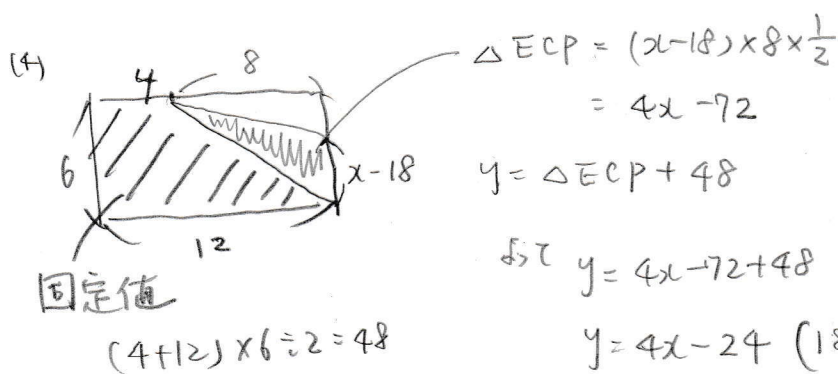 (4)
4
8
6
x-18
12
固定値
(4+12)×6÷2=48
△ECP = (x-18)×8×1/2
= 4x-72
y = △ECP + 48
よって y = 4x-72+48
y = 4x-24 (18